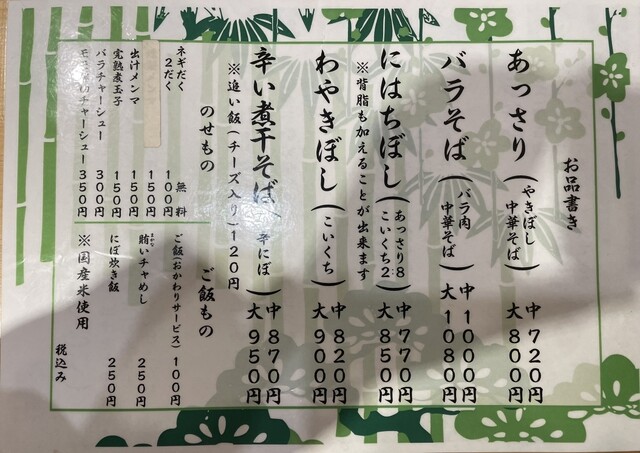 お品書き
あっさり（やきぼし 中華そば）
中 720円
大 800円
バラそば（バラ肉 中華そば）
中 1000円
大 1080円
にはちぼし（あっさり8：こいくち2）
※背脂も加えることが出来ます
中 770円
大 850円
わやきぼし（こいくち）
中 820円
大 900円
辛い煮干そば（辛にぼ）
中 870円
大 950円
※追い飯（チーズ入り）120円
のせもの
ネギだく 無料
2だく 100円
150円
出汁メンマ 150円
完熟煮玉子 150円
バラチャーシュー 300円
チャーシュー 350円
ご飯もの
ご飯（おかわりサービス）100円
賄いチャめし 250円
にぼ炊き飯 250円
※国産米使用
税込み